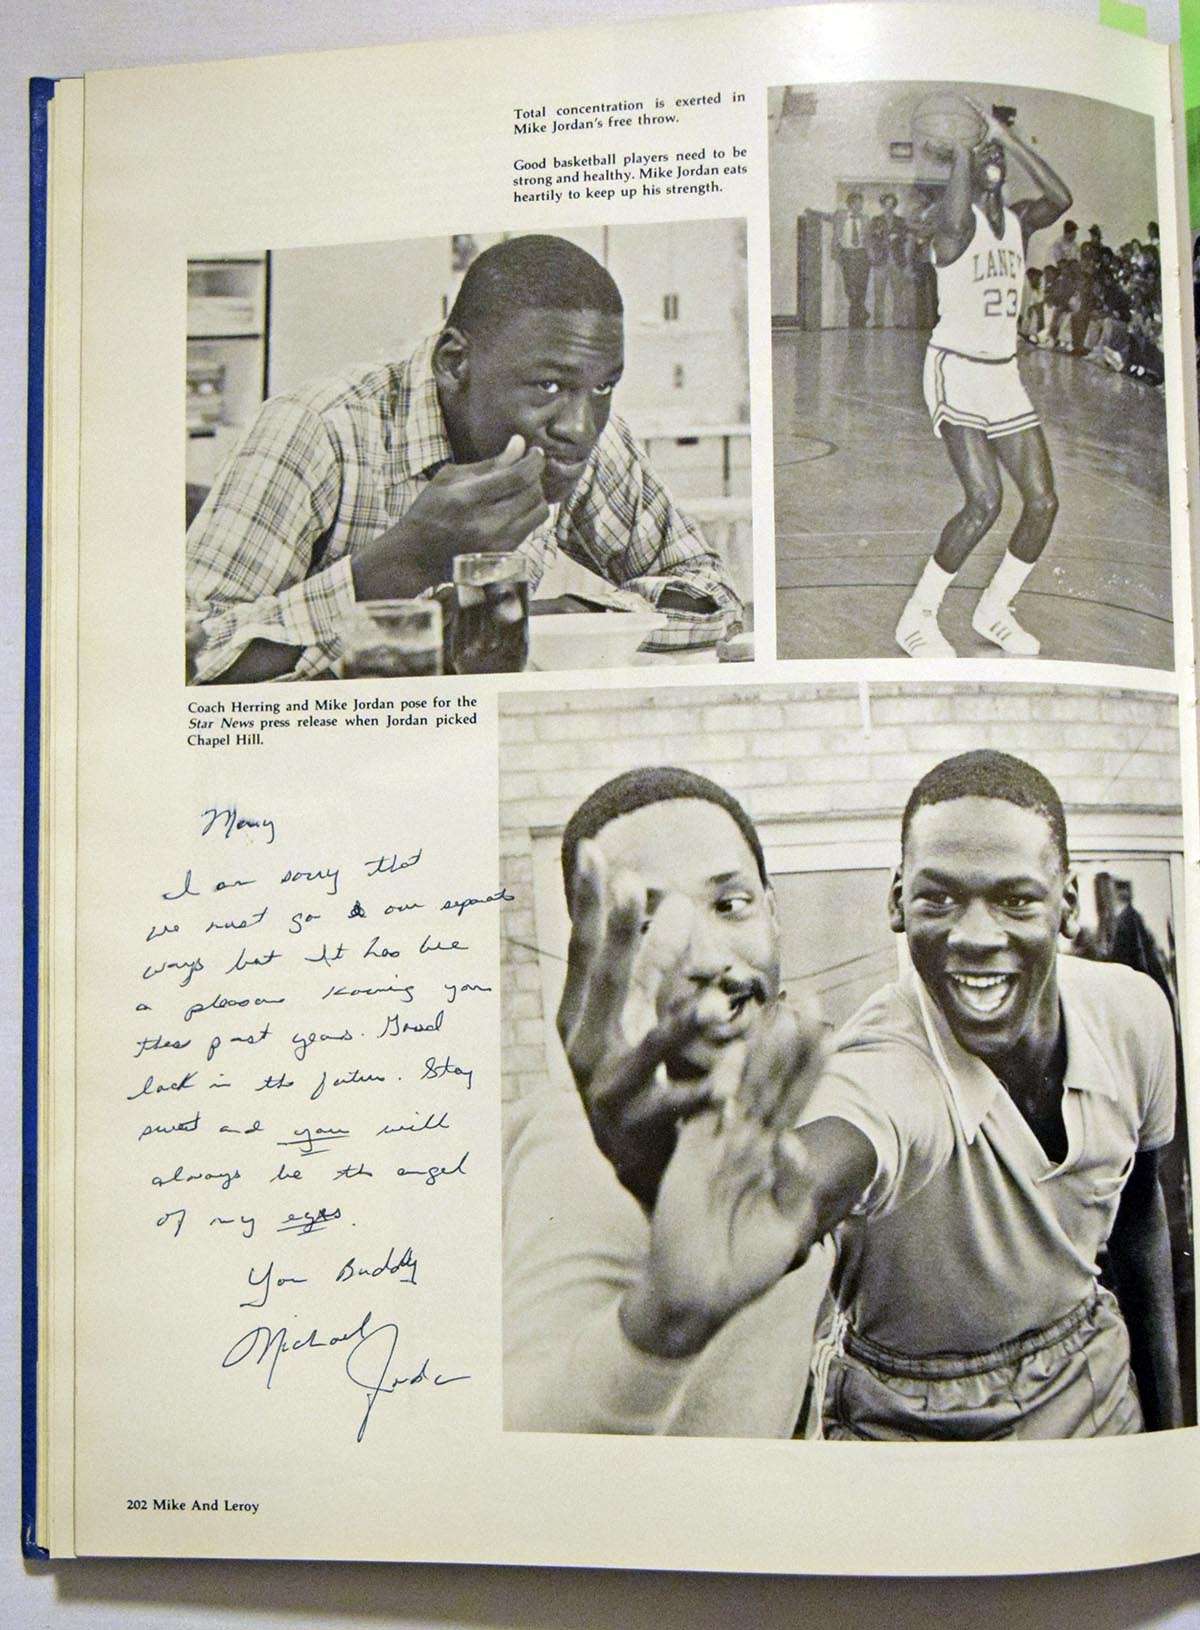 Total concentration is exerted in
Mike Jordan's free throw.
Good basketball players need to be
strong and healthy. Mike Jordan eats
heartily to keep up his strength.
LANEY
23
Coach Herring and Mike Jordan pose for the
Star News press release when Jordan picked
Chapel Hill.
I am sorry that
we must go our separate
ways but It has bee
a pleasure knowing you
these past years. Good
luck in the future. Stay
sweet and you will
always be the angel
of my eyes.
You Buddy
Michael
Jordan
202 Mike And Leroy